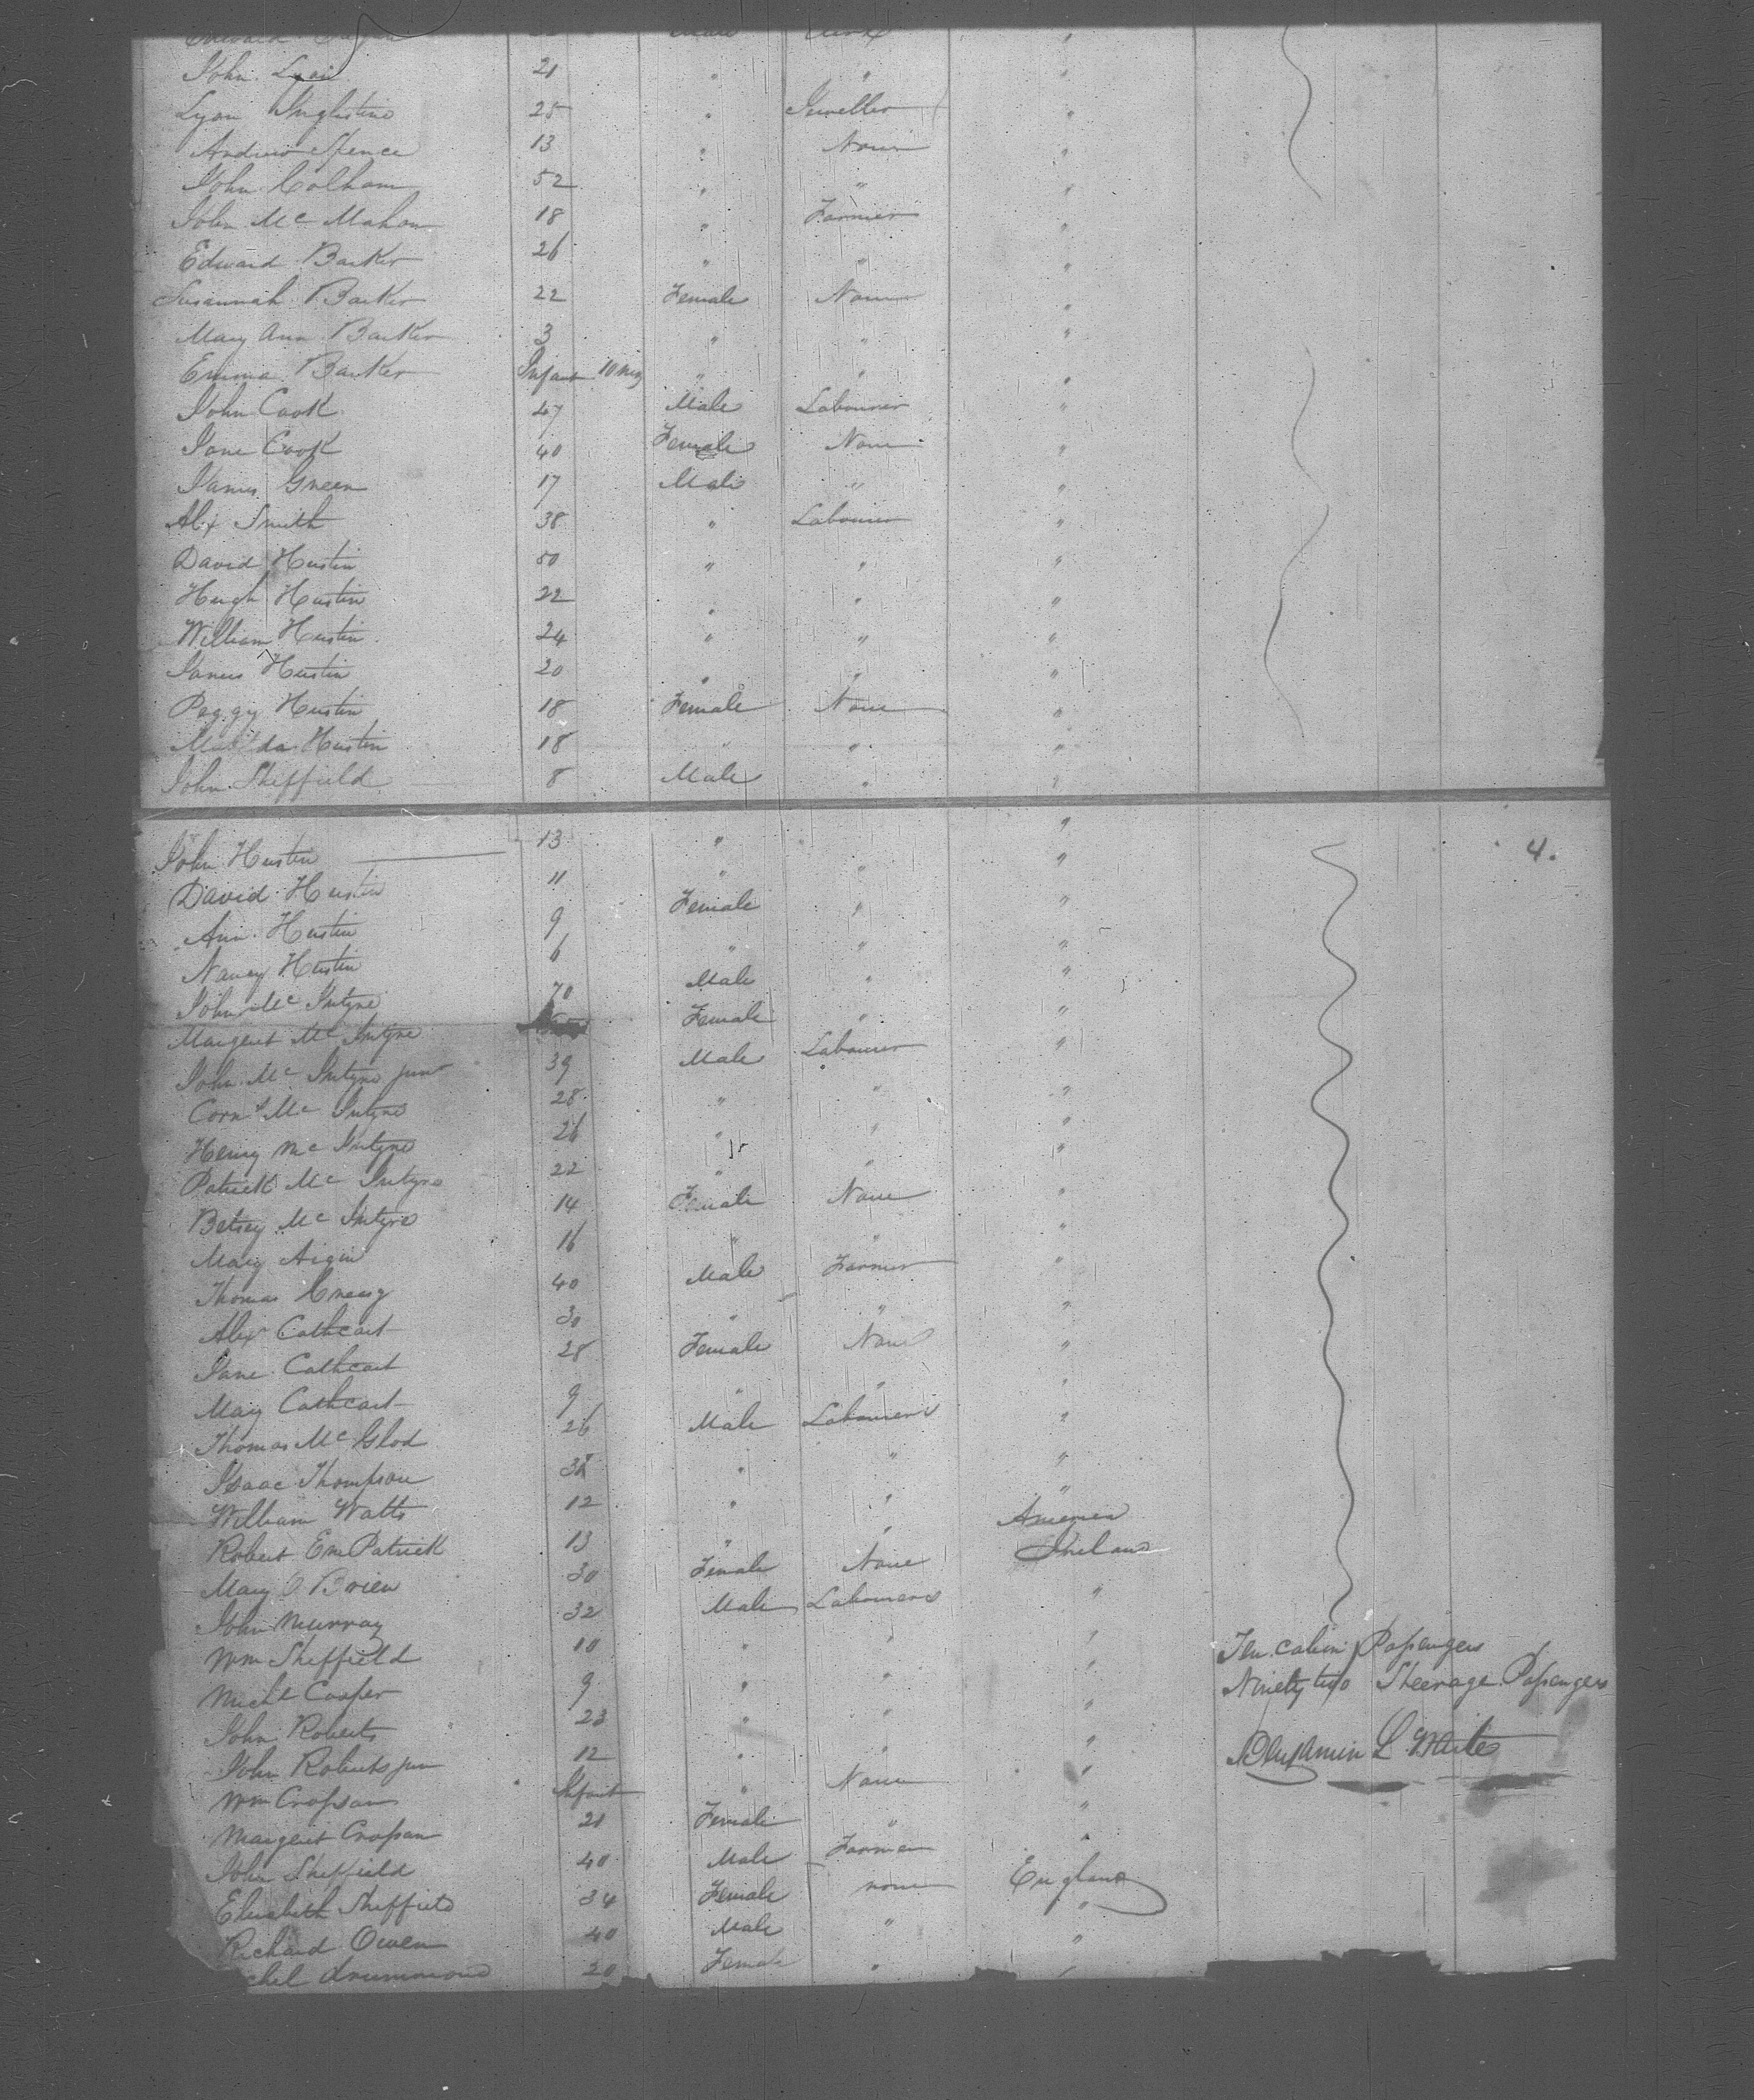 Edward Male Clerk "
John Lyon 21 " " "
Lyon 25 " Jeweller "
Andrew Spence 13 " None "
John Colham 52 " " "
John Mc Mahon 18 " Farmer "
Edward Barker 26 " " "
Susannah Barker 22 Female None "
Mary Ann Barker 3 " " "
Emma Barker Infant 10 mos " " "
John Cook 47 Male Labourer "
Jane Cook 40 Female None "
James Green 17 Male " "
Alex Smith 38 " Labourer "
David Hustin 50 " " "
Hugh Hustin 22 " " "
William Hustin 24 " " "
James Hustin 20 " " "
Peggy Hustin 18 Female None "
Matilda Hustin 18 " " "
John Sheffield 8 Male " "
John Hustin 13 " " " 4.
David Hustin 11 " " "
Ann Hustin 9 Female " "
Nancy Hustin 6 " " "
John Mc Intyre 70 Male " "
Margeret Mc Intyre Female " "
John Mc Intyre junr 39 Male Labourer "
Corns Mc Intyre 28 " " "
Henry Mc Intyre 26 " " "
Patrick Mc Intyre 22 " " "
Betsey Mc Intyre 14 Female None "
Mary 16 " " "
Thomas Creasy 40 Male Farmer "
Alex Cathcart 30 " " "
Jane Cathcart 28 Female None "
Mary Cathcart 9 " " "
Thomas Mc Glod 26 Male Labourers "
Isaac Thompson 38 " " "
William Watts 12 " " "
Robert Em Patrick 13 " " America
Mary O Brien 30 Female None Ireland
John Murray 32 Male Labourers "
Wm Sheffield 10 " " "
Michl Cooper 9 " " "
John Roberts 23 " " "
John Roberts jun 12 " " "
Wm Crossan Infant " None "
Margeret Crossan 21 Female " "
John Sheffield 40 Male Farmer "
Elisabeth Sheffield 34 Female none England
Richard Owen 40 Male " "
chel Drummond 20 Female " "
Ten cabin Passengers
Ninety two Steerage Passengers
Benjamin L. White